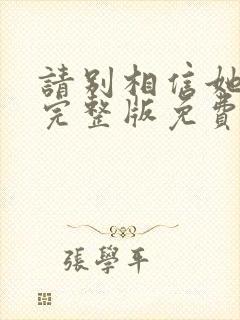 請別相信她
完整版免費
張學平